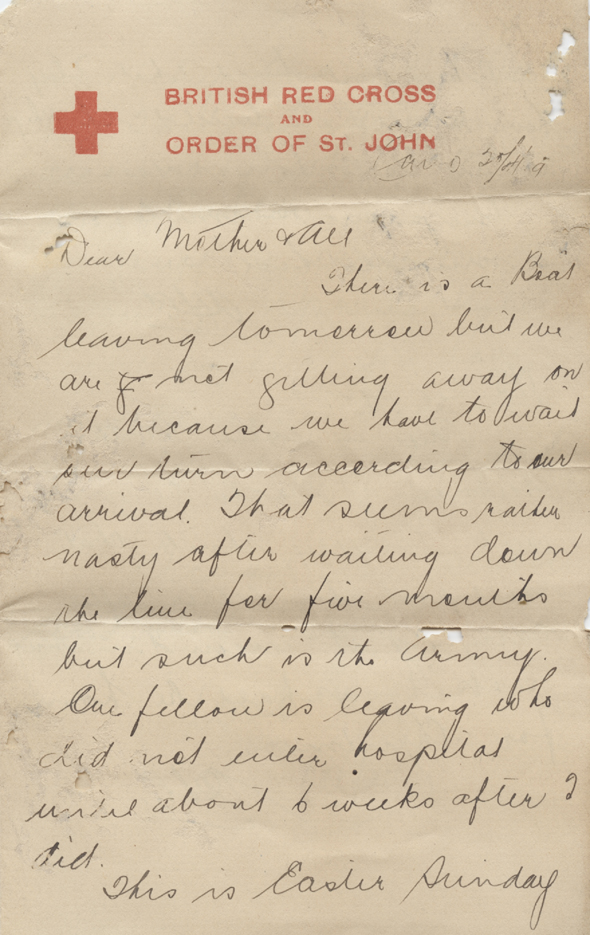 BRITISH RED CROSS
AND
ORDER OF ST. JOHN
Cairo 20/4/19
Dear Mother & All
There is a Boat
leaving tomorrow but we
are not getting away on
it because we have to wait
our turn according to our
arrival. That seems rather
nasty after waiting down
the line for five months
but such is the Army.
One fellow is leaving who
did not enter hospital
until about 6 weeks after I
did.
This is Easter Sunday